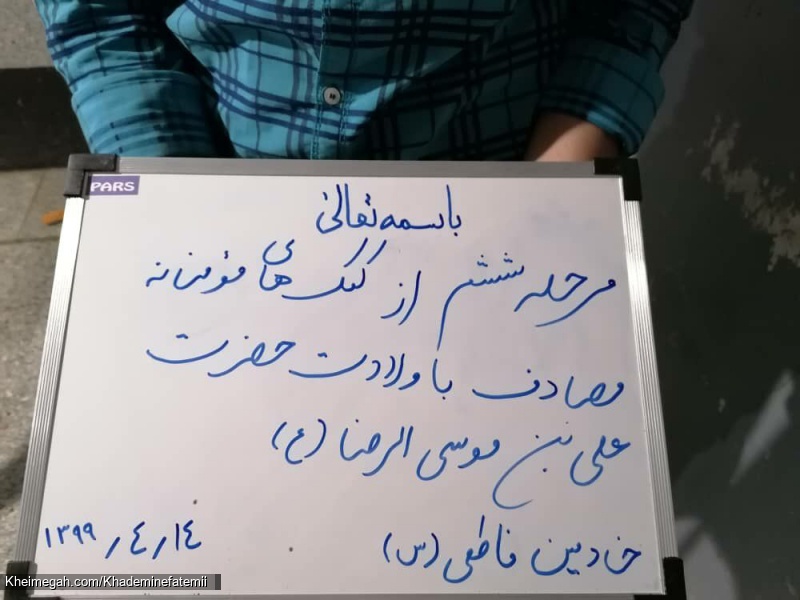 PARS
باسمه تعالی
مرحله ششم از کمک های مؤمنانه
مصادف با ولادت حضرت
علی بن موسی الرضا (ع)
خادمین فاطمی (س)
۱۳۹۹/۴/۱۴
Kheimegah.com/Khademinefatemii